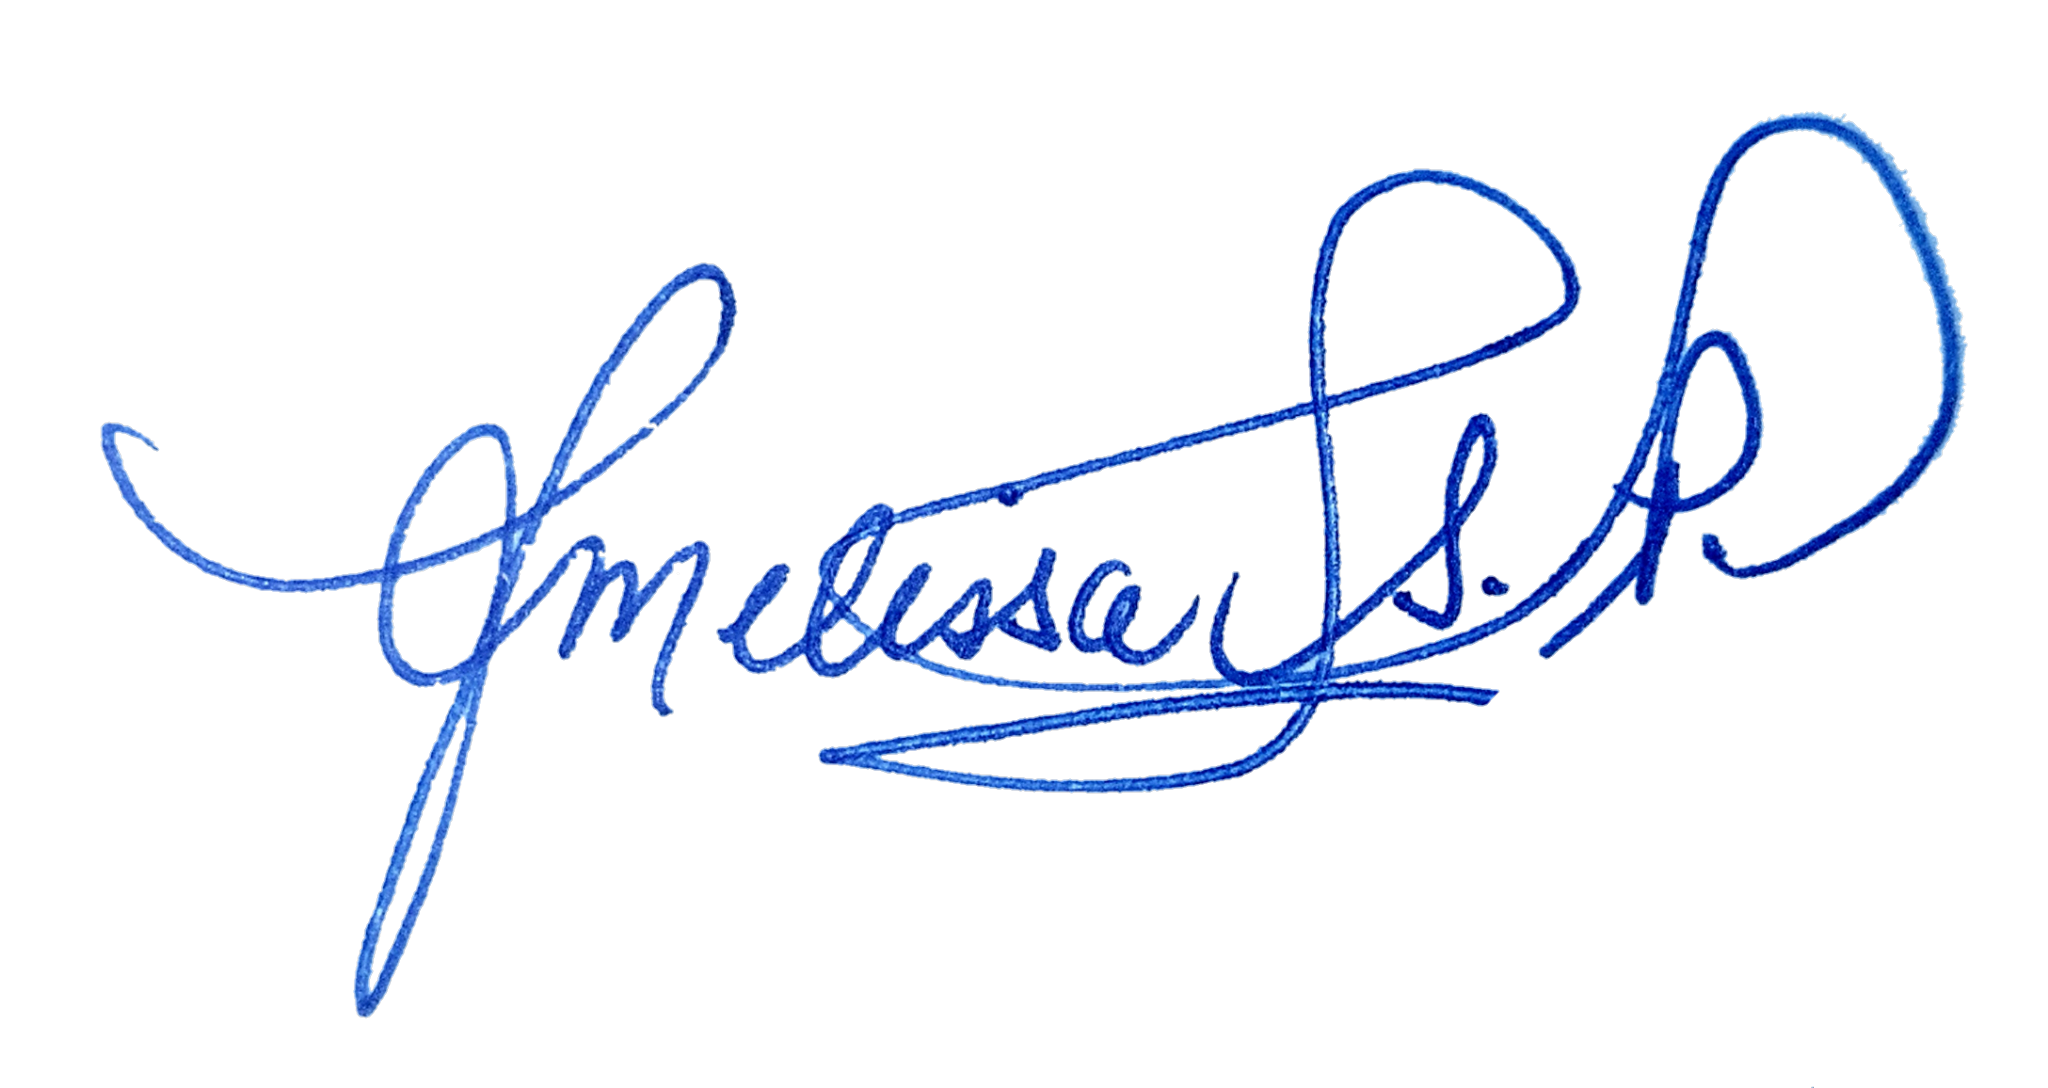 Melissa S. P.